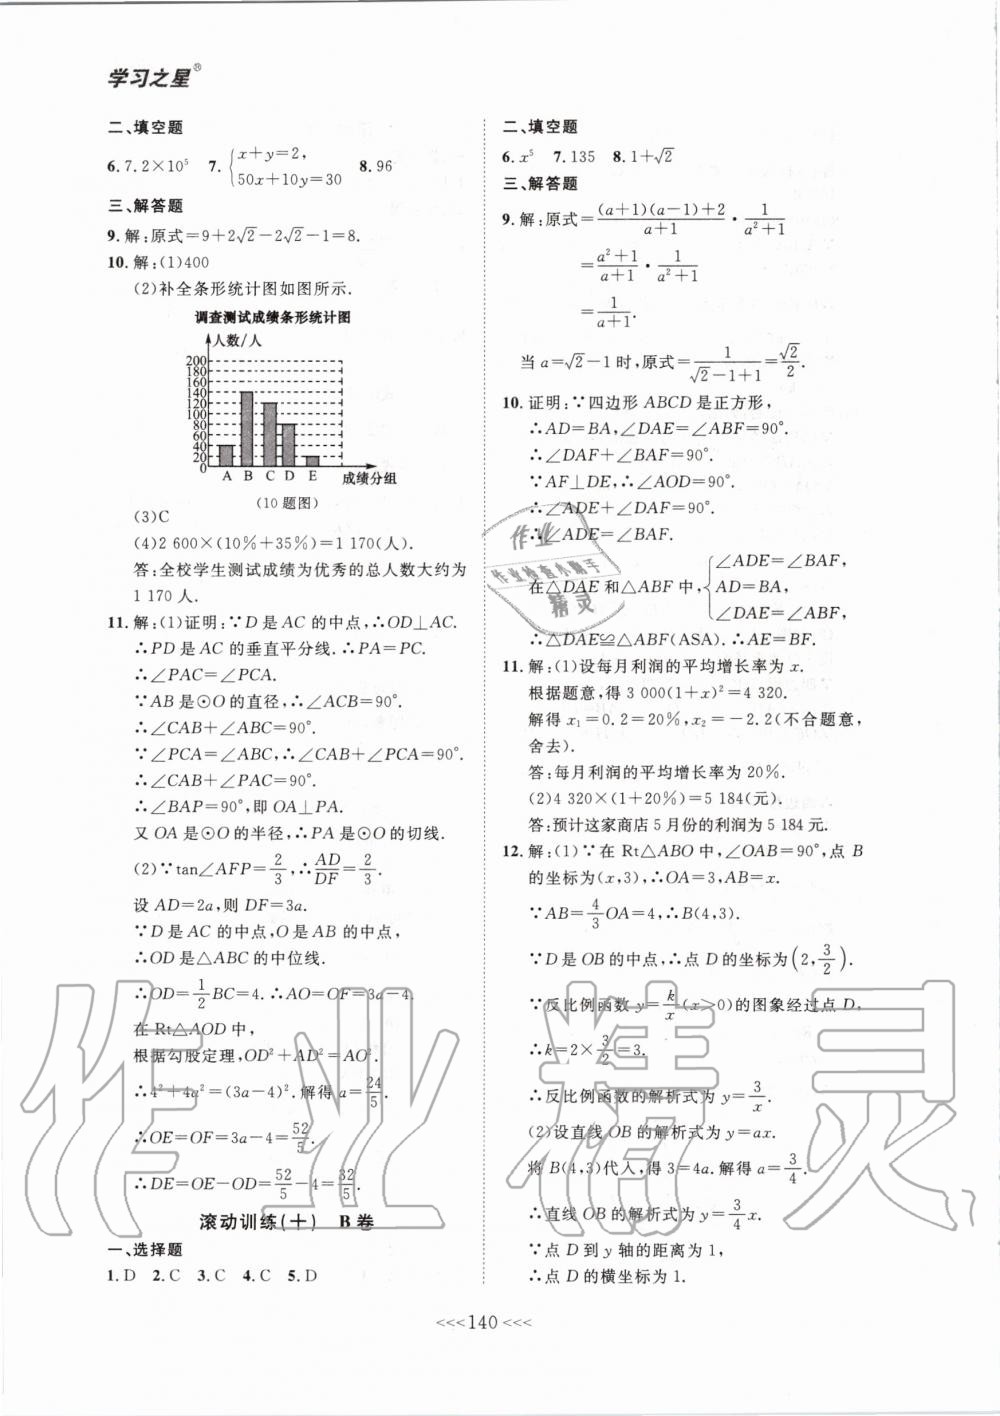 学习之星®
二、填空题
6. 7.2×10⁵ 7. {x+y=2, 50x+10y=30 8. 96
三、解答题
9. 解:原式=9+2√2-2√2-1=8.
10. 解:(1)400
(2)补全条形统计图如图所示.
调查测试成绩条形统计图
人数/人
200
180
160
140
120
100
80
60
40
20
0
A B C D E 成绩分组
(10题图)
(3)C
(4)2 600×(10%+35%)=1 170(人).
答:全校学生测试成绩为优秀的总人数大约为
1 170人.
11. 解:(1)证明:∵D是AC的中点,∴OD⊥AC.
∴PD是AC的垂直平分线.∴PA=PC.
∴∠PAC=∠PCA.
∵AB是⊙O的直径,∴∠ACB=90°.
∴∠CAB+∠ABC=90°.
∵∠PCA=∠ABC,∴∠PAC=∠ABC.
∴∠CAB+∠PAC=90°.
∴∠BAP=90°,即OA⊥PA.
又OA是⊙O的半径,∴PA是⊙O的切线.
(2)∵tan∠AFP=2/3,∴AD/DF=2/3.
设AD=2a,则DF=3a.
∵D是AC的中点,O是AB的中点,
∴OD是△ABC的中位线.
∴OD=1/2BC=4.∴AO=OF=3a-4.
在Rt△AOD中,
根据勾股定理,OD²+AD²=AO².
∴4²+4a²=(3a-4)².解得a=24/5.
∴OE=OF=3a-4=52/5.
∴DE=OE-OD=52/5-4=32/5.
滚动训练(十) B卷
一、选择题
1. D 2. C 3. C 4. C 5. D
二、填空题
6. x⁵ 7. 135 8. 1+√2
三、解答题
9. 解:原式=((a+1)(a-1)+2)/(a+1)·1/(a²+1)
=(a²+1)/(a+1)·1/(a²+1)
=1/(a+1).
当a=√2-1时,原式=1/(√2-1+1)=√2/2.
10. 证明:∵四边形ABCD是正方形,
∴AD=BA,∠DAE=∠ABF=90°.
∴∠DAF+∠BAF=90°.
∵AF⊥DE,∴∠AOD=90°.
∴∠ADE+∠DAF=90°.
∴∠ADE=∠BAF.
在△DAE和△ABF中,{∠ADE=∠BAF, AD=BA, ∠DAE=∠ABF,
∴△DAE≌△ABF(ASA).∴AE=BF.
11. 解:(1)设每月利润的平均增长率为x.
根据题意,得3 000(1+x)²=4 320.
解得x₁=0.2=20%,x₂=-2.2(不合题意,
舍去).
答:每月利润的平均增长率为20%.
(2)4 320×(1+20%)=5 184(元).
答:预计这家商店5月份的利润为5 184元.
12. 解:(1)∵在Rt△ABO中,∠OAB=90°,点B
的坐标为(x,3),∴OA=3,AB=x.
∵AB=4/3OA=4,∴B(4,3).
∵D是OB的中点,∴点D的坐标为(2,3/2).
∵反比例函数y=k/x(x>0)的图象经过点D,
∴k=2×3/2=3.
∴反比例函数的解析式为y=3/x.
(2)设直线OB的解析式为y=ax.
将B(4,3)代入,得3=4a.解得a=3/4.
∴直线OB的解析式为y=3/4x.
∵点D到y轴的距离为1,
∴点D的横坐标为1.
作业
作业检查小助手
精灵
作业精灵
<<<140<<<